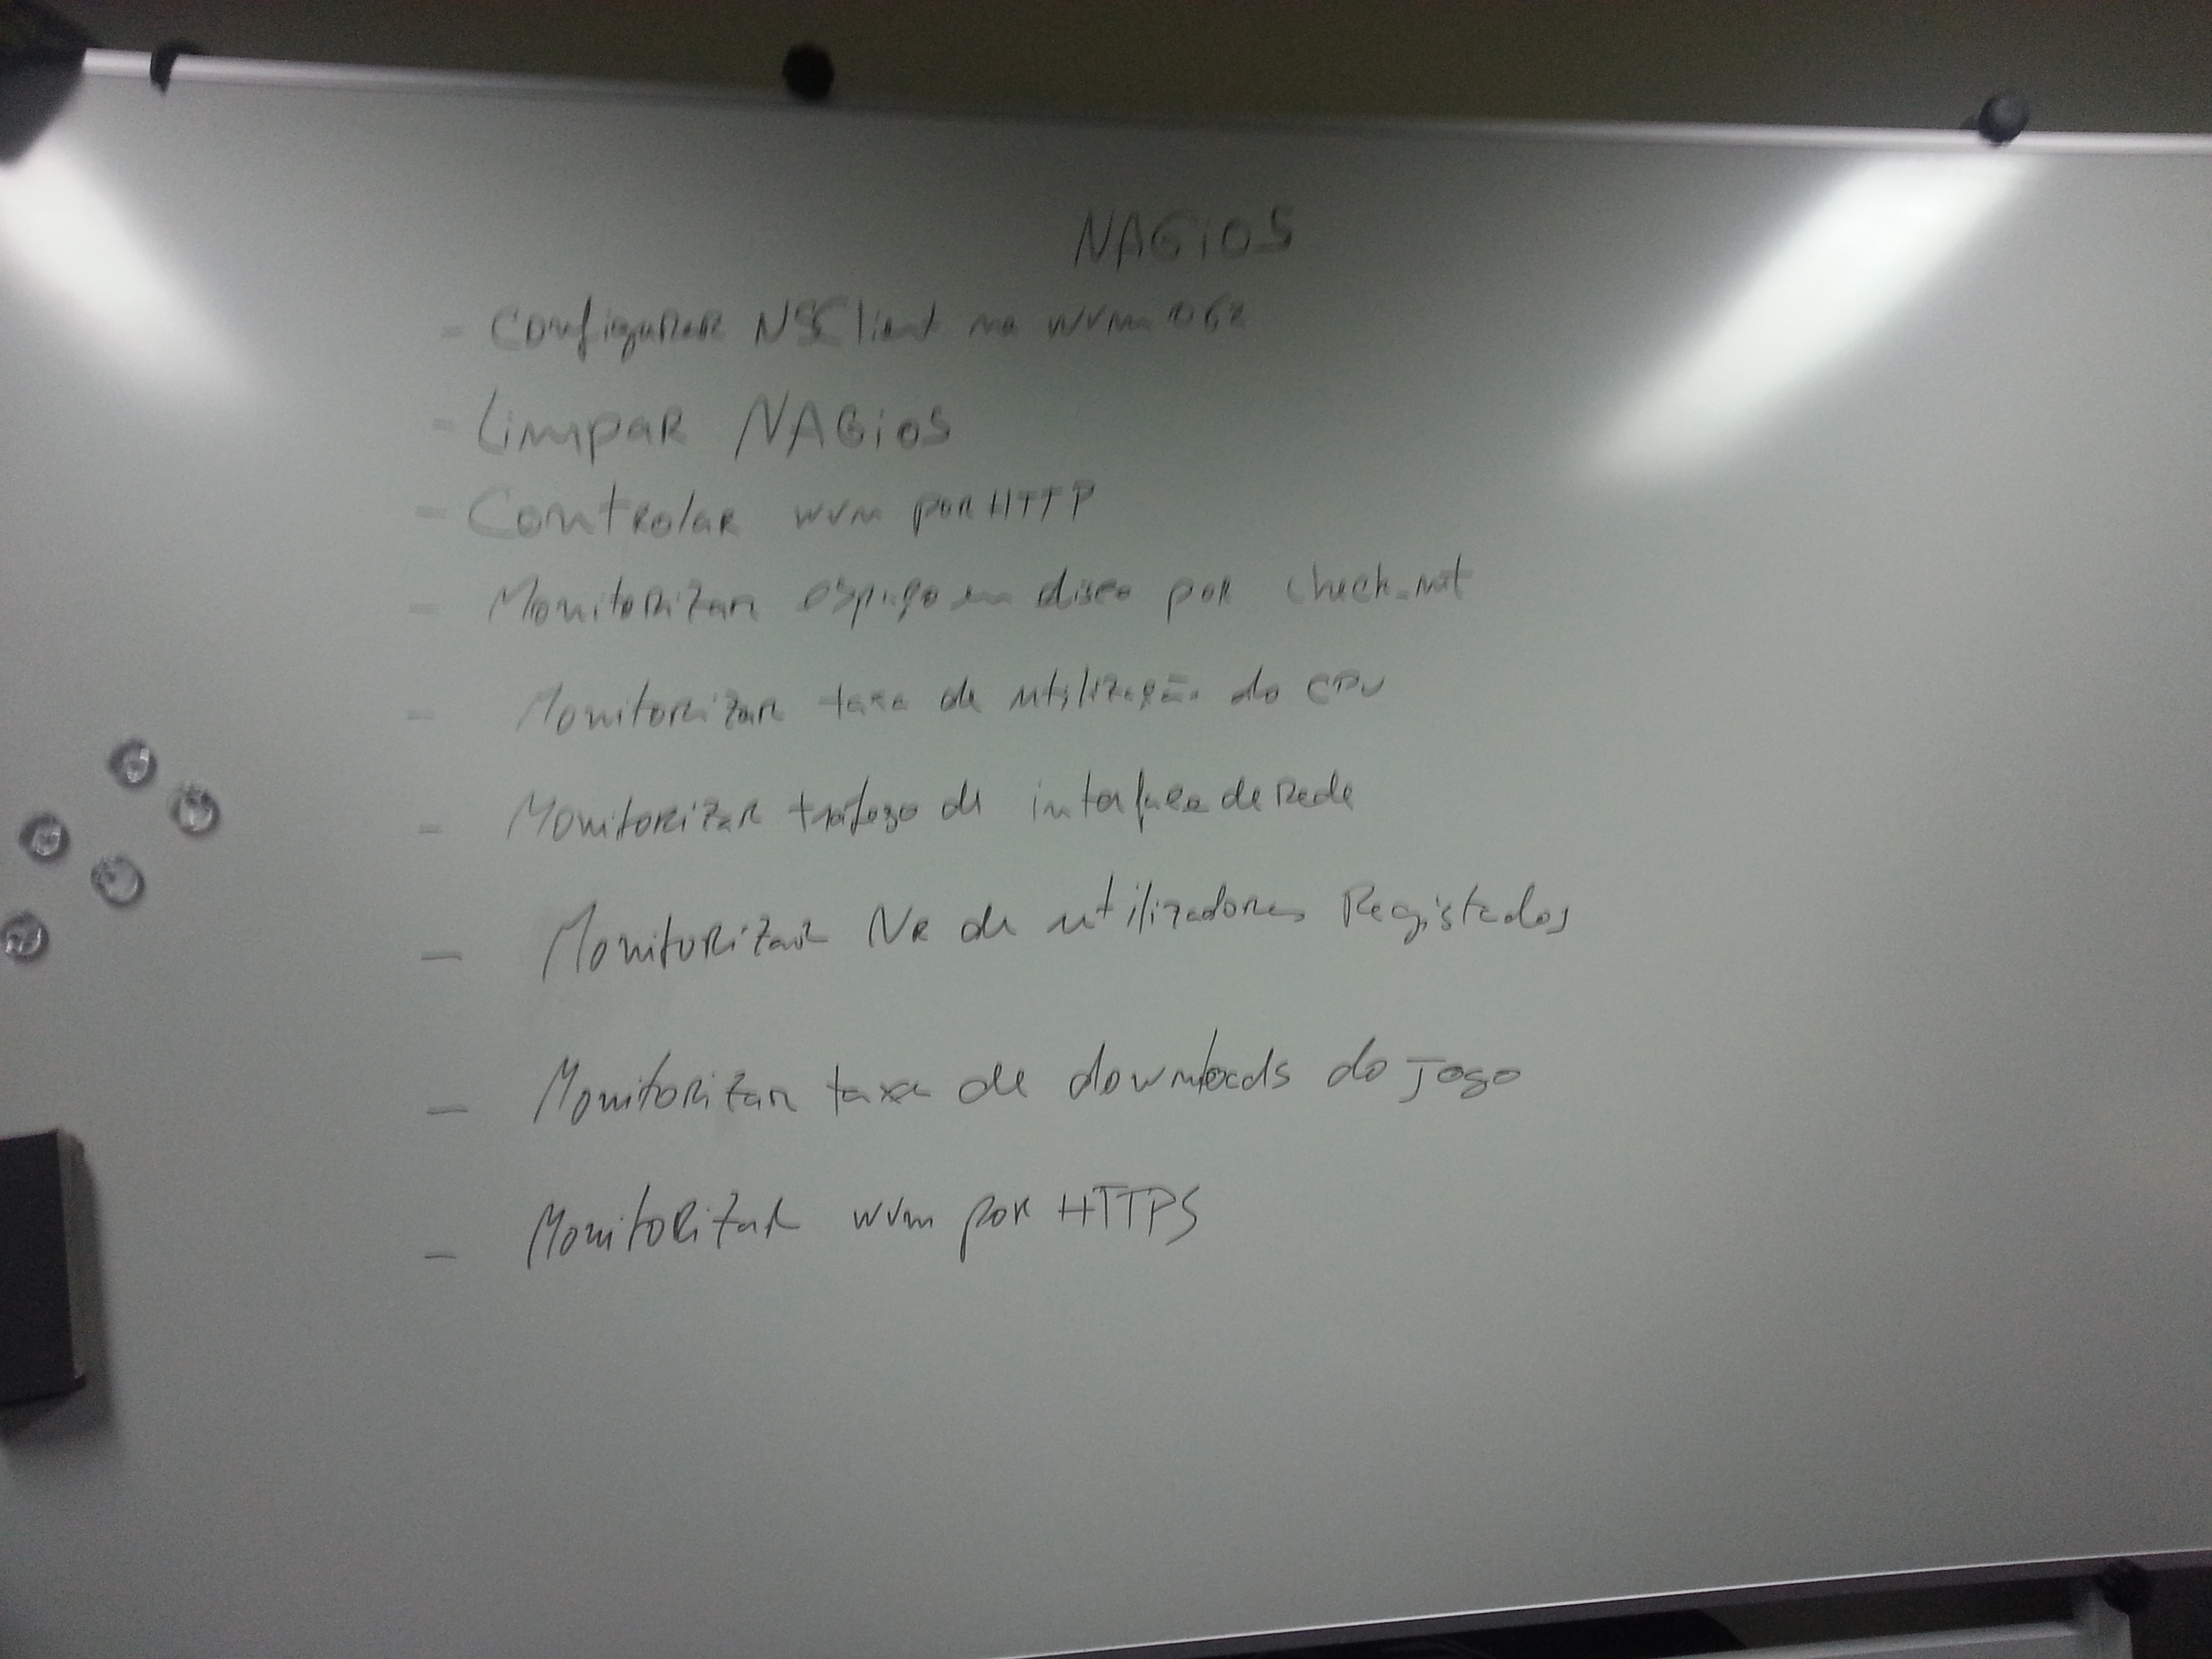 NAGiOS
- Configurar NSClient na wvm 062
- Limpar NAGiOS
- Controlar wvm por HTTP
- Monitorizar espaço em disco por check_nt
- Monitorizar taxa de utilização do CPU
- Monitorizar tráfego de interface de Rede
- Monitorizar NR de utilizadores Registados
- Monitorizar taxa de downloads do jogo
- Monitorizar wvm por HTTPS